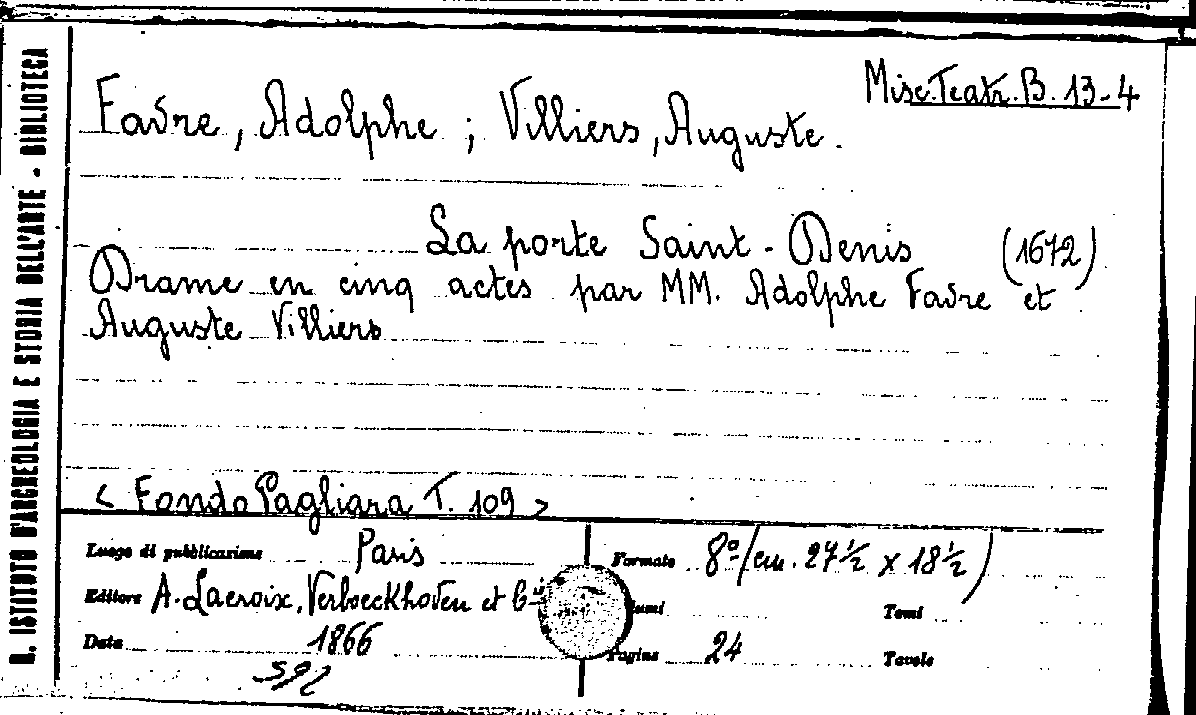 R. ISTITUTO D'ARCHEOLOGIA E STORIA DELL'ARTE - BIBLIOTECA
Misc.Teatr.B. 13-4
Favre, Adolphe ; Villiers, Auguste.
La porte Saint-Denis (1672)
Drame en cinq actes par MM. Adolphe Favre et
Auguste Villiers
< Fondo Pagliara T. 109 >
Luogo di pubblicazione Paris
Formato 8º/cm. 27½ x 18½)
Editore A. Lacroix, Verboeckhoven et
Tomi
Data 1866
Pagine 24
Tavole